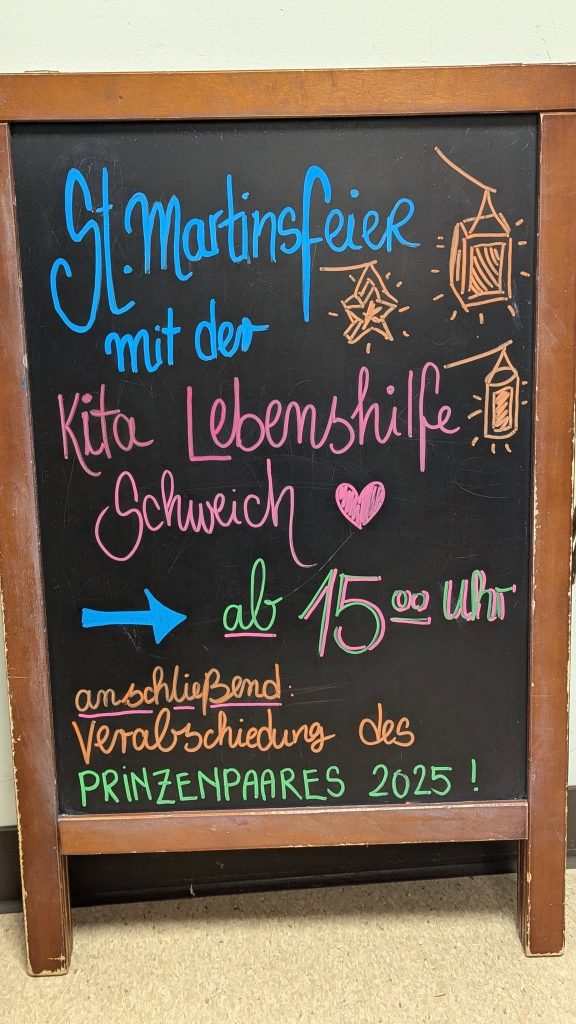 St. Martinsfeier
mit der
Kita Lebenshilfe
Schweich
ab 15 00 Uhr
anschließend:
Verabschiedung des
PRINZENPAARES 2025 !